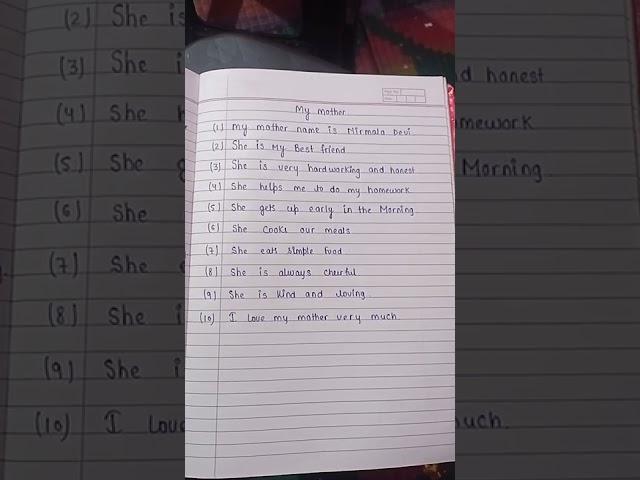 My mother
(1) my mother name is Nirmala Devi
(2) She is My Best friend
(3) She is very hardworking and honest
(4) She helps me to do my homework
(5) She gets up early in the Morning
(6) She cooks our meals
(7) She eats simple food
(8) She is always cheerful
(9) She is kind and loving
(10) I love my mother very much